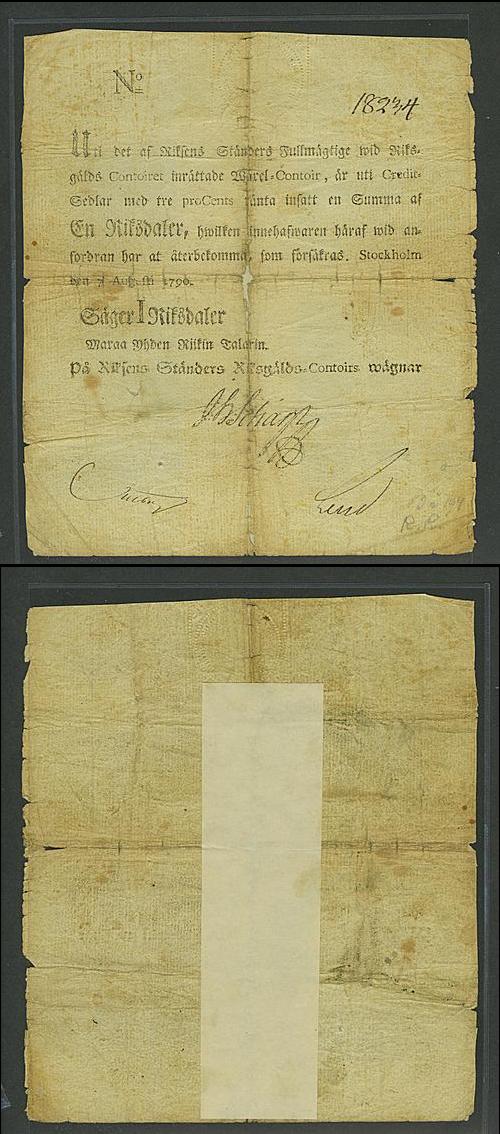 No
18234
Uti det af Riksens Ständers Fullmägtige wid Riks-
gälds Contoiret inrättade Wäxel-Contoir, är uti Credit-
Sedlar med tre proCents ränta insatt en Summa af
En Riksdaler, hwilken innehafwaren häraf wid an-
fordran har at återbekomma, som försäkras. Stockholm
den Augusti 1790.
Säger 1 Riksdaler
Maraa Yhden Rijkin Talarin.
På Riksens Ständers Riksgälds-Contoirs wägnar